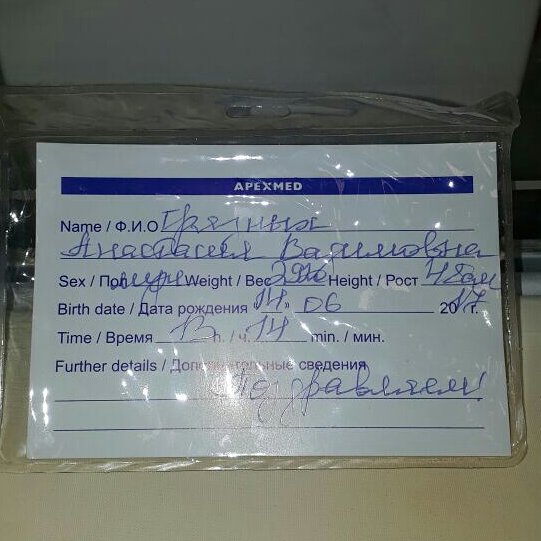 APEXMED
Name / Ф.И.О Грязных
Анастасия Вадимовна
Sex / Пол Weight / Вес Height / Рост 48см
Birth date / Дата рождения 14 06 2017 г.
Time / Время 13 h. / ч. 14 min. / мин.
Further details / Дополнительные сведения
Поздравляем!